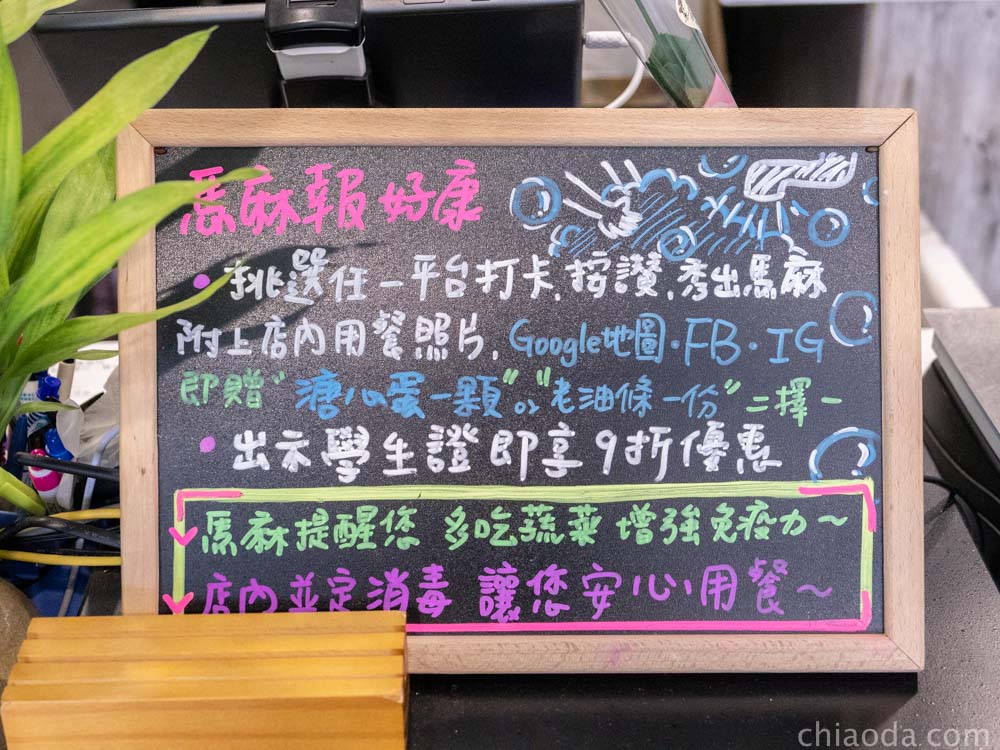 馬麻報好康
• 挑選任一平台打卡,按讚,秀出馬麻
附上店內用餐照片, Google地圖·FB·IG
即贈"溏心蛋一顆"or"老油條一份"二擇一
• 出示學生證即享9折優惠
馬麻提醒您 多吃蔬菜 增強免疫力~
店內並定消毒 讓您安心用餐~
chiaoda.com